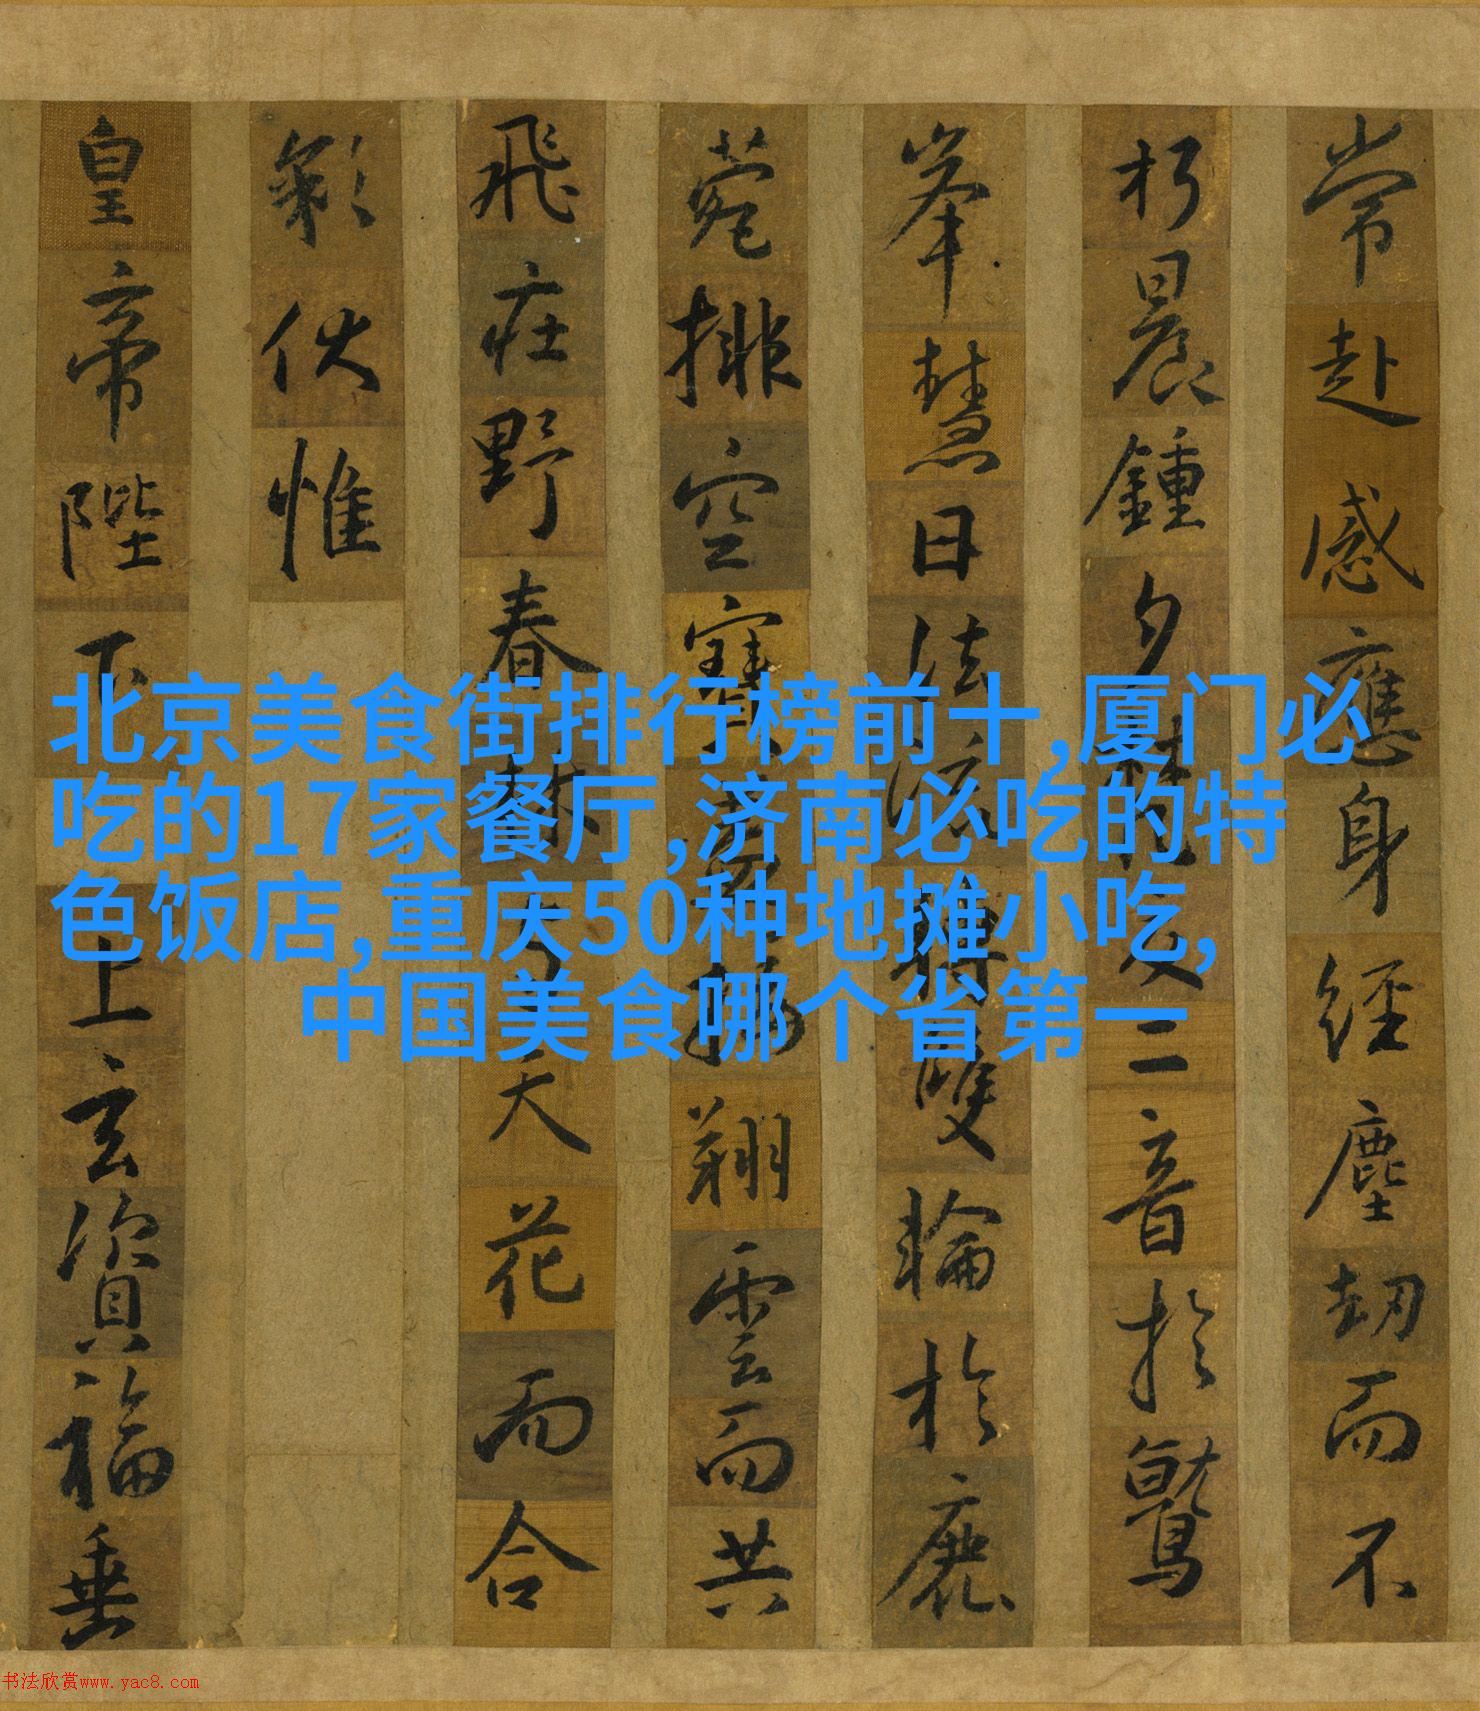 常赴感應身經塵劫而不
朽晨鍾夕梵交二音於鷲
峯慧日法流轉雙輪於鹿
菀排空寶蓋接翔雲而共
飛莊野春林與天花而合
彩伏惟
皇帝陛下上玄資福垂
北京美食街排行榜前十,厦门必
吃的17家餐厅,济南必吃的特
色饭店,重庆50种地摊小吃,
中国美食哪个省第一
书法欣赏www.yac8.com